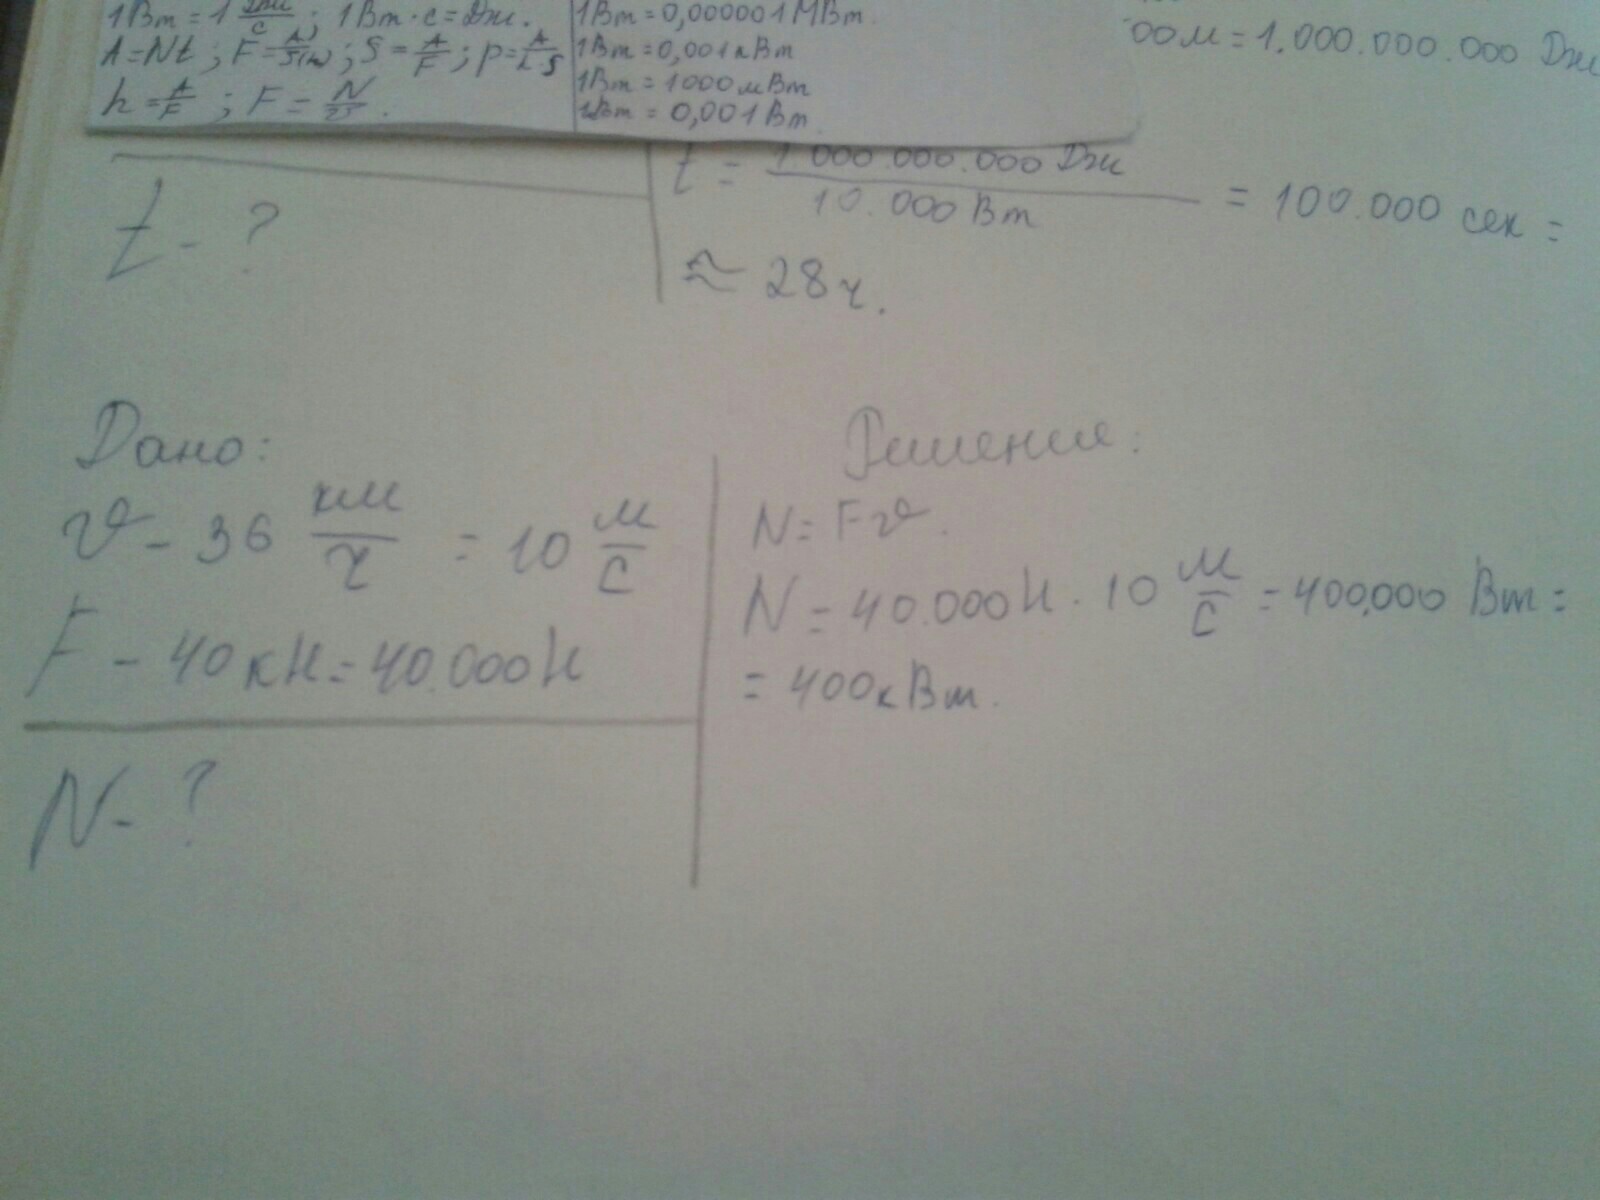 1Вт = 1 Дж/с ; 1Вт·с = Дж.
A = Nt ; F = A/S(h) ; S = A/F ; p =
h = A/F ; F = N/v .
1Вт = 0,000001 МВт.
1Вт = 0,001 кВт
1Вт = 1000 мВт
1мВт = 0,001 Вт.
00м = 1.000.000.000 Дж
t = 1.000.000.000 Дж / 10.000 Вт = 100.000 сек =
≈ 28 ч.
t - ?
Дано:
v - 36 км/ч = 10 м/с
F - 40 кН = 40.000 Н
N - ?
Решение:
N = Fv.
N = 40.000 Н · 10 м/с = 400.000 Вт =
= 400 кВт.